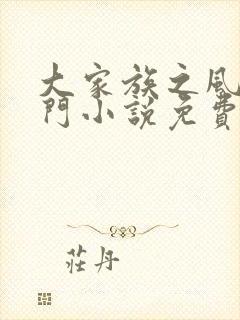 大家族之風
門小說免費
莊丹